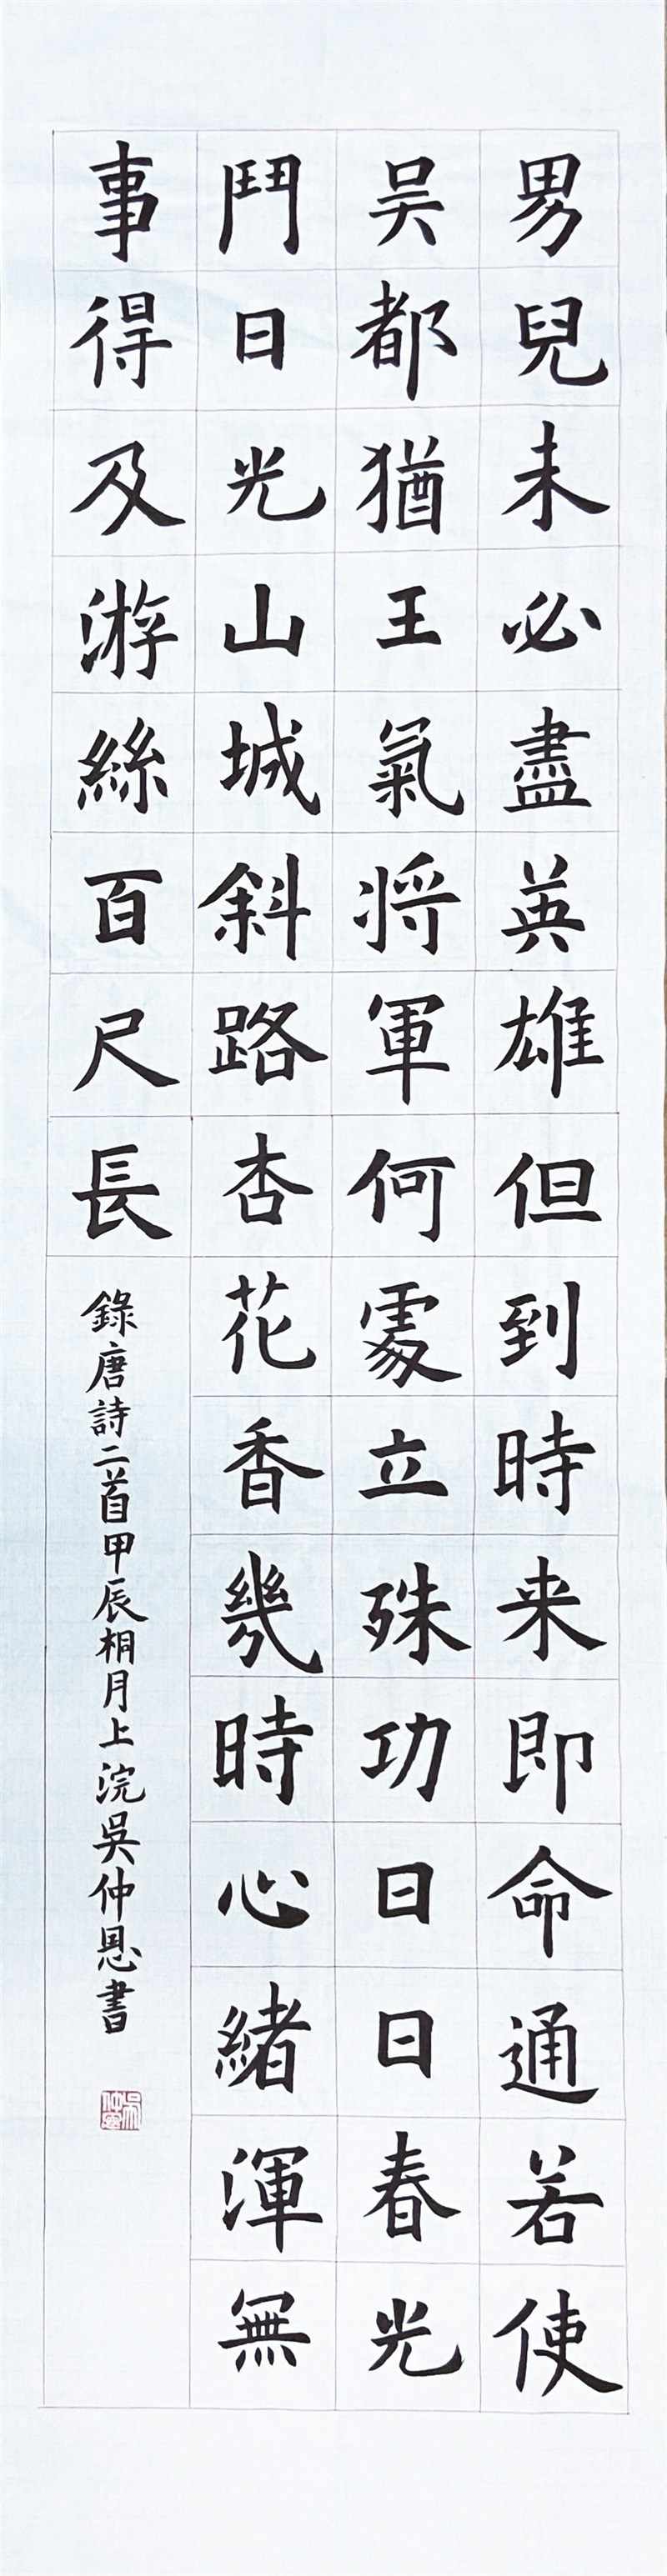 男兒未必盡英雄但到時来即命通若使
吴都猶王氣将軍何處立殊功日日春光
鬥日光山城斜路杏花香幾時心緒渾無
事得及游絲百尺長
錄唐詩二首甲辰桐月上浣吳仲恩書